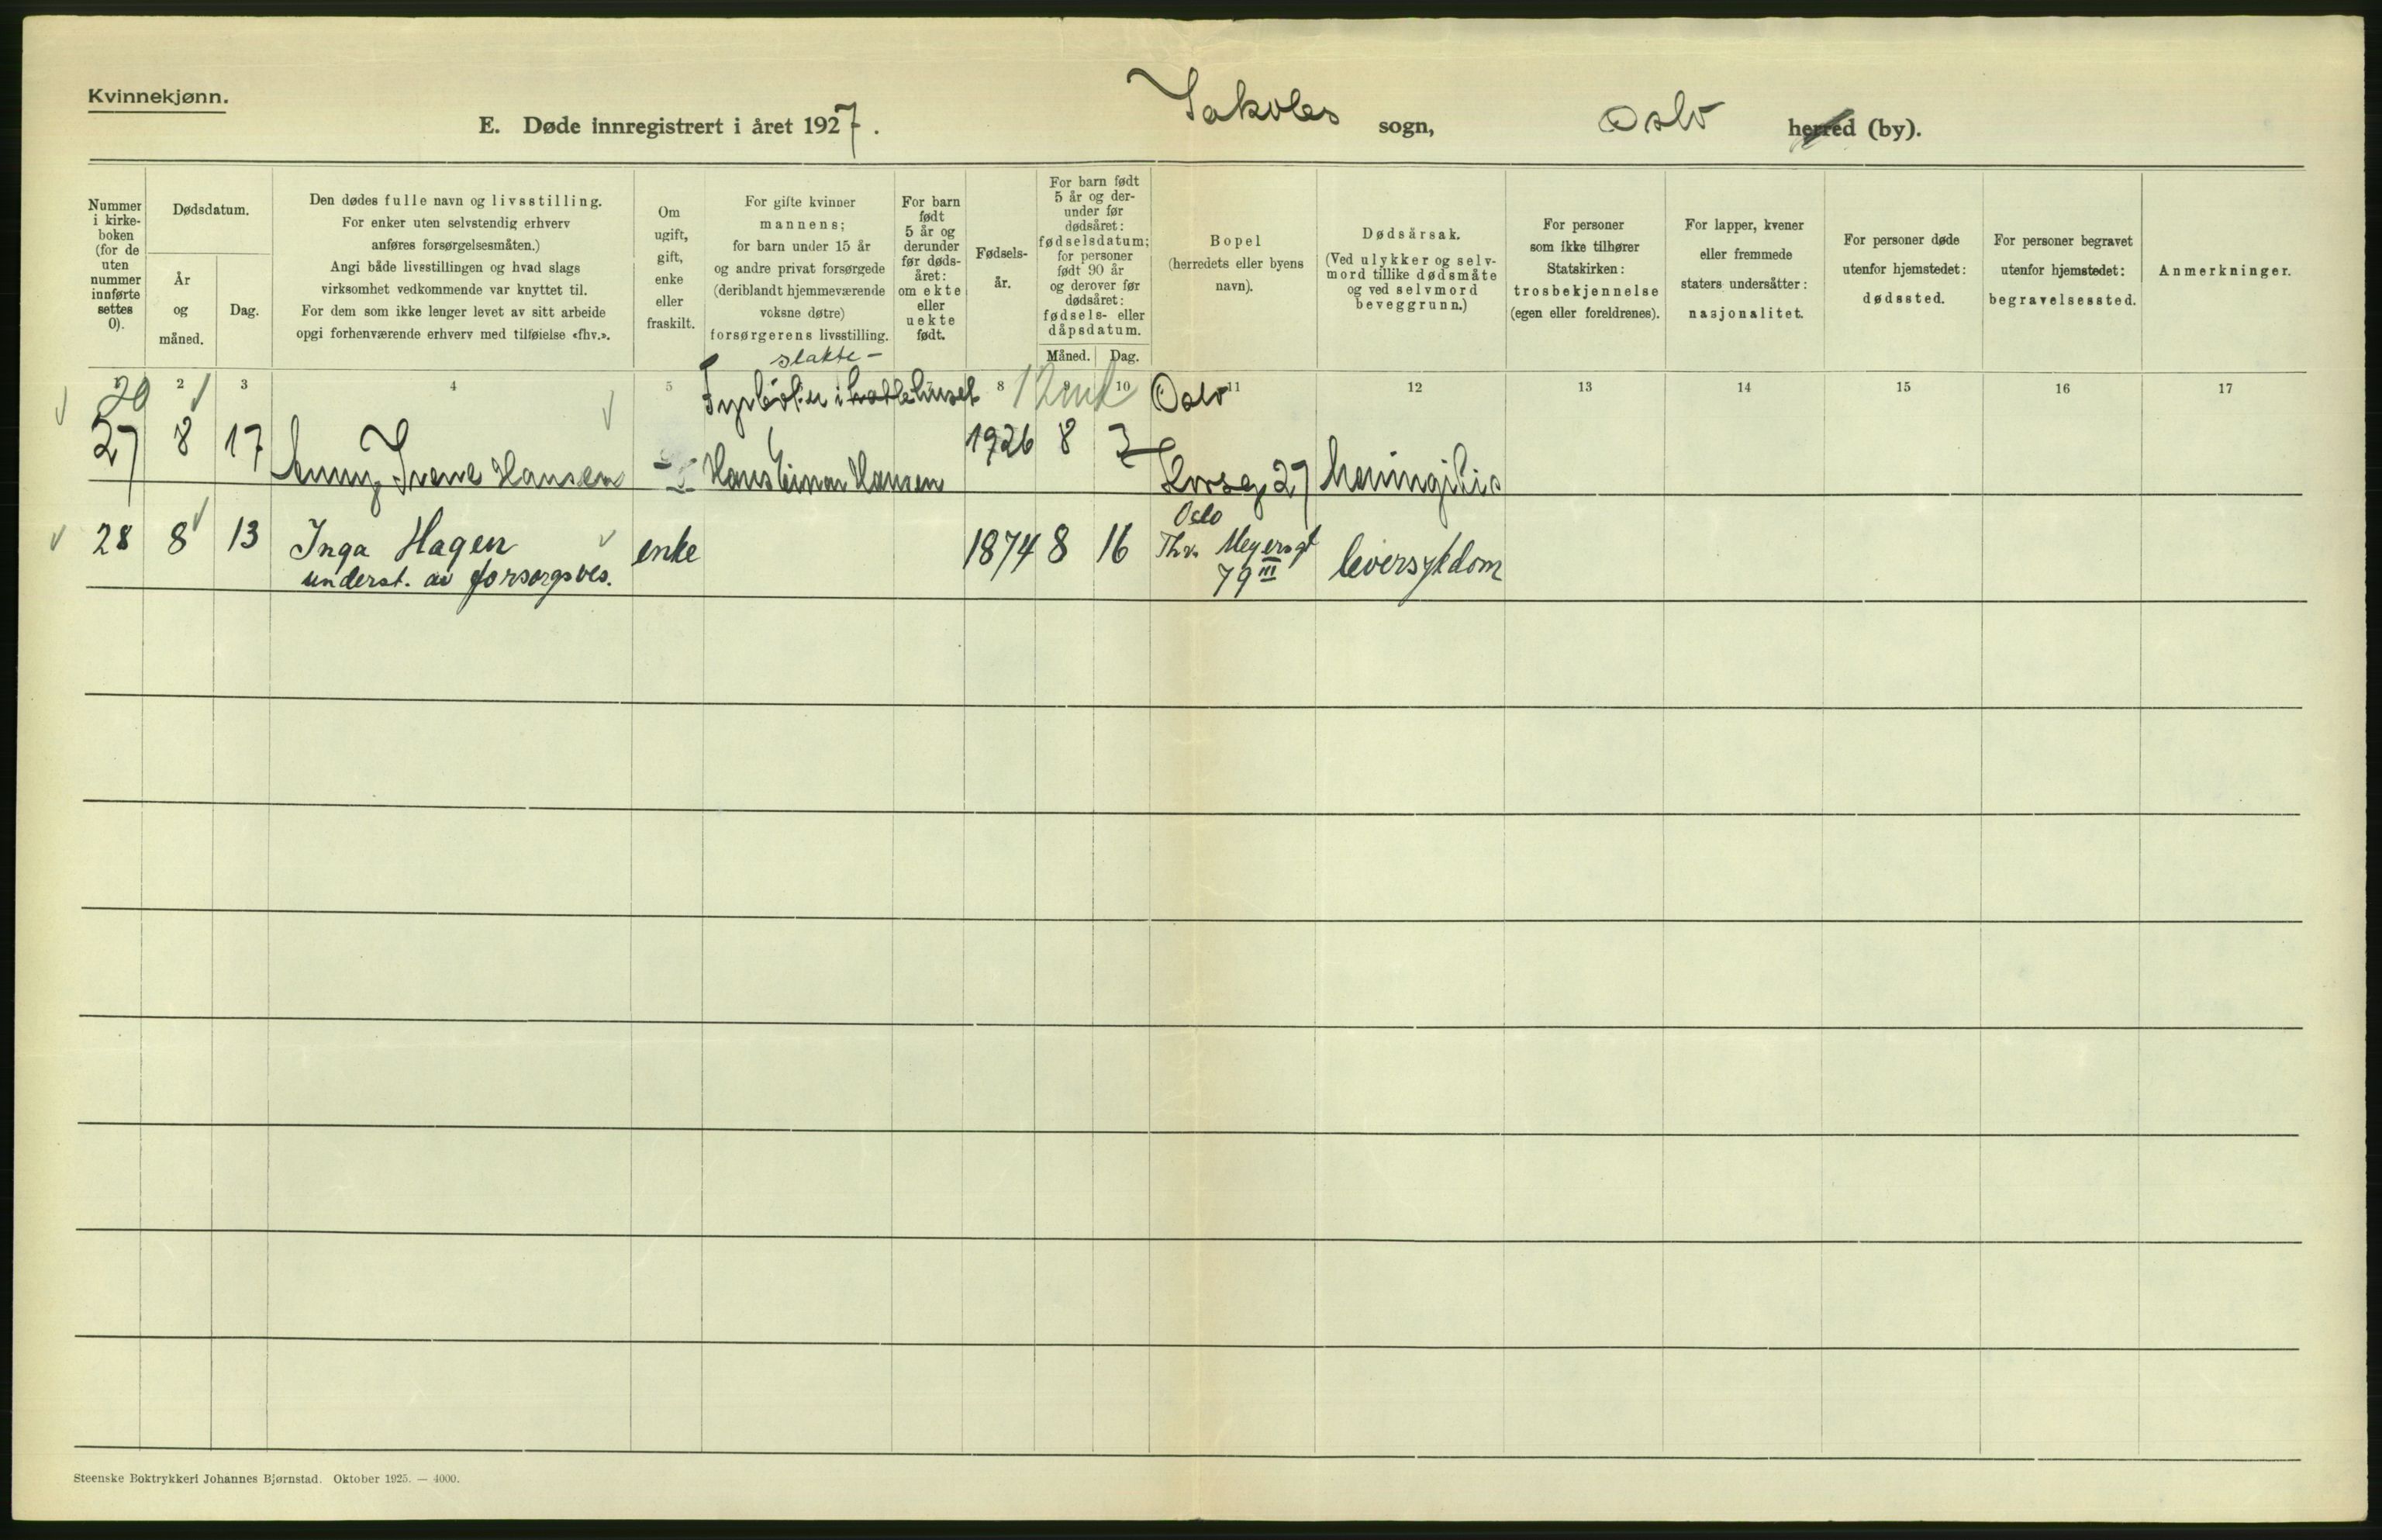 Kvinnekjønn.
E. Døde innregistrert i året 1927. Jakobs sogn, Oslo herred (by).
Nummer i kirke- boken (for de uten nummer innførte settes 0).
Dødsdatum.
År og måned.
Dag.
Den dødes fulle navn og livsstilling.
For enker uten selvstendig erhverv
anføres forsørgelsesmåten.)
Angi både livsstillingen og hvad slags
virksomhet vedkommende var knyttet til.
For dem som ikke lenger levet av sitt arbeide
opgi forhenværende erhverv med tilføielse «fhv.».
Om
ugift,
gift,
enke
eller
fraskilt.
For gifte kvinner
mannens;
for barn under 15 år
og andre privat forsørgede
(deriblandt hjemmeværende
voksne døtre)
forsørgerens livsstilling.
For barn
født
5 år og
derunder
før døds-
året:
om ekte
eller
uekte
født.
Fødsels-
år.
For barn født
5 år og der-
under før
dødsåret:
fødselsdatum;
for personer
født 90 år
og derover før
dødsåret:
fødsels- eller
dåpsdatum.
Måned. Dag.
Bopel
(herredets eller byens
navn).
Dødsårsak.
(Ved ulykker og selv-
mord tillike dødsmåte
og ved selvmord
beveggrunn.)
For personer
som ikke tilhører
Statskirken:
trosbekjennelse
(egen eller foreldrenes).
For lapper, kvener
eller fremmede
staters undersåtter:
nasjonalitet.
For personer døde
utenfor hjemstedet:
dødssted.
For personer begravet
utenfor hjemstedet:
begravelsessted.
Anmerkninger.
2 3 4 5 8 9 10 11 12 13 14 15 16 17
slakte-
Fyrbøter i huset
Oslo
27 8 17 Irene Hansen Hans Einar Hansen 1926 8 Korsg 27 Meningitis
28 8 13 Inga Hagen enke 1874 8 16 Oslo
Thv. Meyersgt
79 III
leversykdom
underst. av forsorgsves.
Steenske Boktrykkeri Johannes Bjørnstad. Oktober 1925. — 4000.